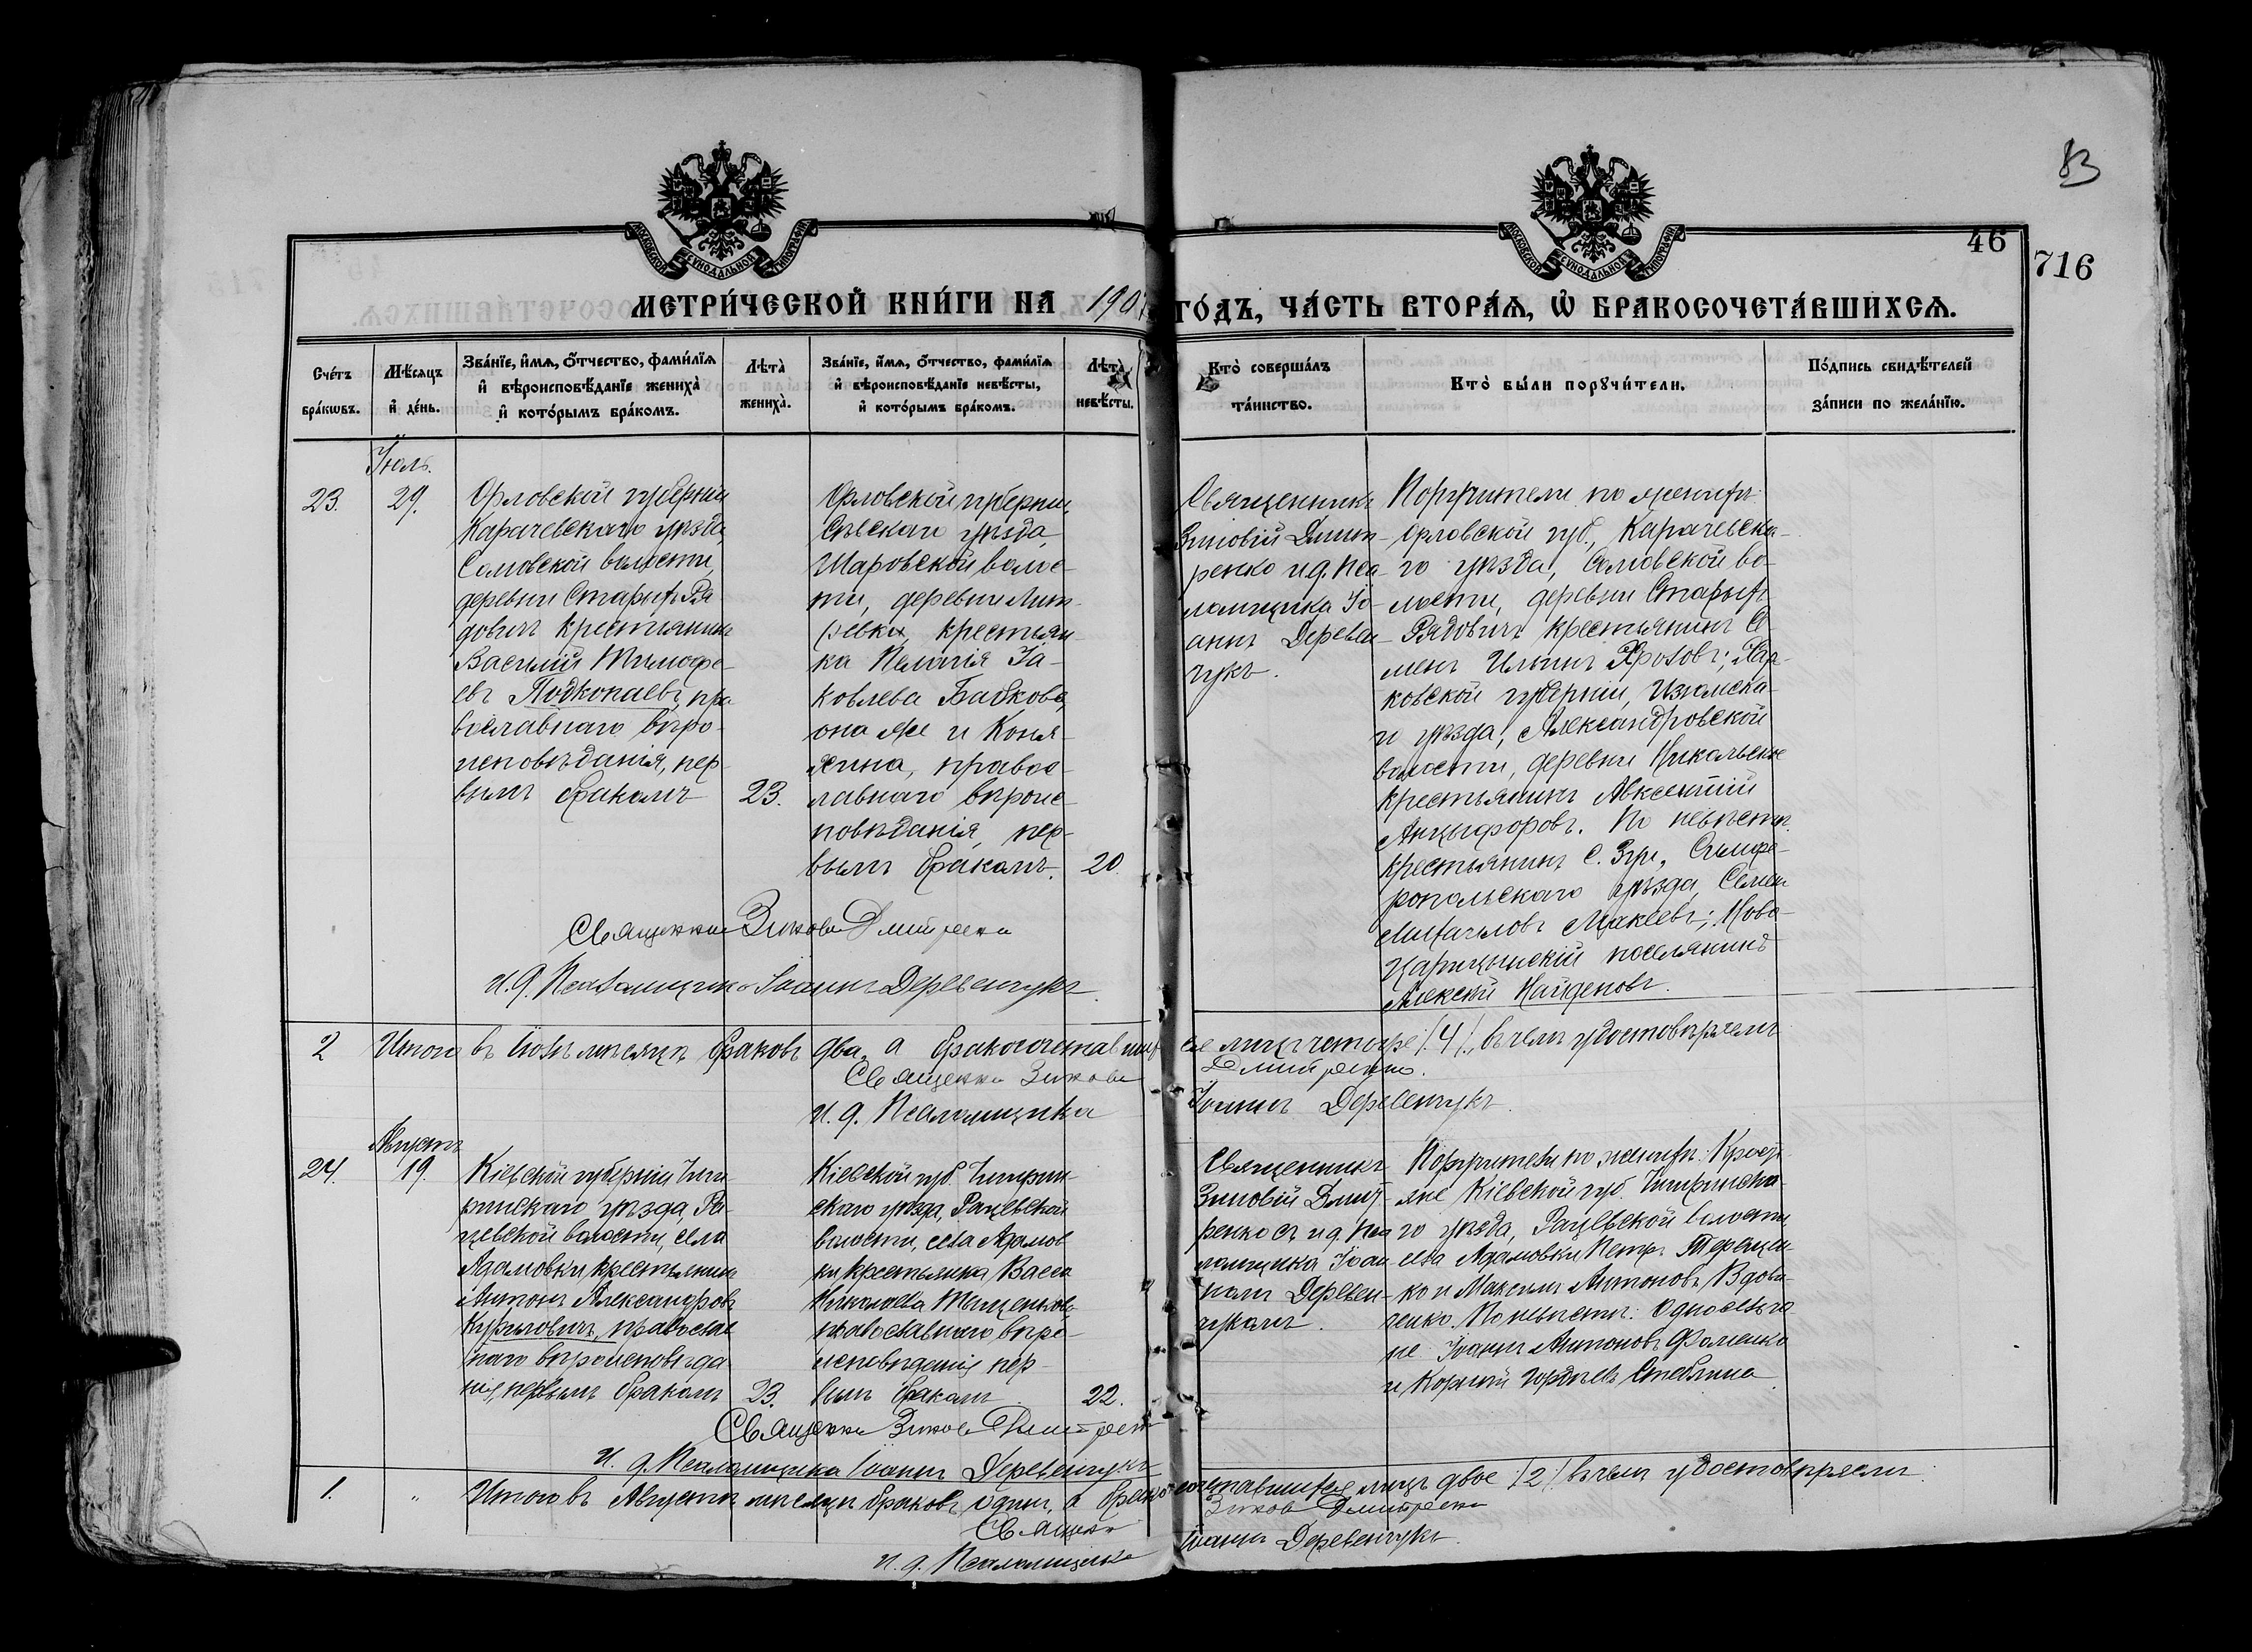 83
46
716
МОСКОВСКОЙ СѴНОДАЛЬНОЙ ТИПОГРАФІИ
МОСКОВСКОЙ СѴНОДАЛЬНОЙ ТИПОГРАФІИ
МЕТРИ́ЧЕСКОЙ КНИ́ГИ НА 190 ГО́ДЪ, ЧА́СТЬ ВТОРА́Я, Ѡ БРАКОСОЧЕТА́ВШИХСЯ.
Сче́тъ бра́кѡвъ.
Мѣ́сяцъ и҆ де́нь.
Зва́нїе, и҆́мя, о҆́тчество, фами́лїя
и҆ вѣроисповѣ́данїе жениха̀
и҆ кото́рымъ бра́комъ.
Лѣта̀
жениха̀.
Зва́нїе, и҆́мя, о҆́тчество, фами́лїя
и҆ вѣроисповѣ́данїе невѣ́сты,
и҆ кото́рымъ бра́комъ.
Лѣта̀
невѣ́сты.
Кто̀ соверша́лъ
та́инство.
Кто̀ бы́ли порꙋчи́тели.
По́дпись свидѣ́телей
за́писи по жела́нїю.
Іюль.
23.
29.
Орловской губерніи
Карачевскаго уѣзда,
Сомовской волости,
деревни Старыхъ Ря
довичъ крестьянинъ
Василій Тимофе-
евъ Подкопаевъ, пра
вославнаго вѣро-
исповѣданія, пер-
вымъ бракомъ
23.
Орловской губерніи,
Сѣвскаго уѣзда,
Шаровской волос-
ти, деревни
крестьян-
ка Пелагія Іа-
ковлева Бабкова,
она же и
православ-
лавнаго вѣроис-
повѣданія, пер-
вымъ бракомъ.
20.
Священникъ
Зиновій Дмит-
ренко и д. Пса-
ломщика Іо-
аннъ Деревен-
чукъ.
Поручители по женихѣ:
Орловской губ., Карачевска-
го уѣзда, Сомовской во-
лости, деревни Старыхъ
Рядовичъ крестьянинъ С
менъ Ильинъ Хар-
ковской губерніи, Изюмска-
го уѣзда, Александровской
волости, деревни Никольское
крестьянинъ Авксентій
Анцыфоровъ. По невѣстѣ:
крестьянинъ с. Зуи, Симфе-
ропольскаго уѣзда, Семен
Михаиловъ Макѣевъ; Ново-
Царицынскій поселянинъ
Алексѣй Найденовъ.
Священникъ Зиновій Дмитренко
И. д. Псаломщика Іоаннъ Деревенчукъ.
2 Итого въ Іюлѣ мѣсяцѣ браковъ два, а бракосочетавших ся лицъ четыре /4/, въ чемъ удостовѣряемъ
Священникъ Зиновій Дмитренко.
И. д. Псаломщика Іоаннъ Деревенчукъ.
Августъ
24.
19.
Кіевской губерніи Чиги
ринскаго уѣзда, Ра-
цевской волости, села
Адамовки крестьянинъ
Антонъ Александровъ
Кириловичъ, православ
наго вѣроисповѣда
нія, первымъ бракомъ
23.
Кіевской губ. Чигирин-
скаго уѣзда, Рацевской
волости, села Адамов
ки крестьянка Васса
Николаева Тищенкова,
православнаго вѣро-
исповѣданія пер-
вымъ бракомъ
22.
Священникъ
Зиновій Дмит-
ренко съ и д. Пса
ломщика Іоан
номъ Деревен-
чукомъ.
Поручители по женихѣ: Кресть-
яне Кіевской губ. Чигиринска-
го уѣзда, Рацевской волости
села Адамовки Петръ Терещен-
ко и Максимъ Антоновъ Вдови-
ченко. По невѣстѣ: Односельча-
не Іоаннъ Антоновъ Фоменко
и Корнѣй Гордѣевъ Стеблина
Священникъ Зиновій Дмитренко
И. д. Псаломщика Іоаннъ Деревенчукъ
1. " Итого въ Августѣ мѣсяцѣ браковъ одинъ, а брако сочетавшихся лицъ двое /2/ въ чемъ удостовѣряемъ.
Священникъ Зиновій Дмитренко
И. д. Псаломщика Іоаннъ Деревенчукъ.